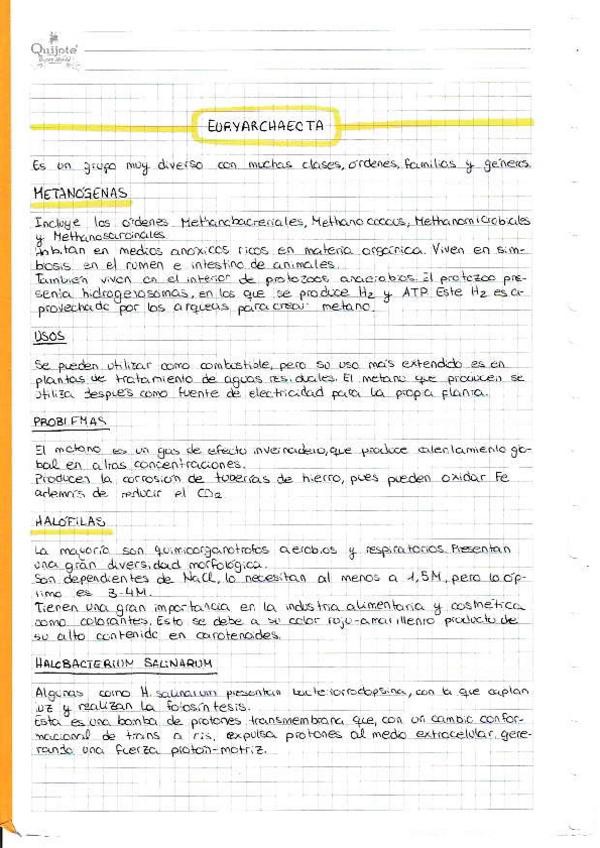 Quijote
EURYARCHAEOTA
Es un grupo muy diverso con muchas clases, órdenes, familias y géneros.
METANÓGENAS
Incluye los órdenes Methanobacteriales, Methanococcus, Methanomicrobiales
y Methanosarcinales.
Habitan en medios anóxicos ricos en materia orgánica. Viven en sim-
biosis en el rumen e intestino de animales.
También viven en el interior de protozoos anaerobios. El protozoo pre-
senta hidrogenosomas, en los que se produce H2 y ATP. Este H2 es a-
provechado por los arqueas para crear metano.
USOS
Se pueden utilizar como combustible, pero su uso más extendido es en
plantas de tratamiento de aguas residuales. El metano que producen se
utiliza después como fuente de electricidad para la propia planta.
PROBLEMAS
El metano es un gas de efecto invernadero, que produce calentamiento glo-
bal en altas concentraciones.
Producen la corrosión de tuberías de hierro, pues pueden oxidar Fe
además de reducir el CO2
HALÓFILAS
La mayoría son quimiorganótrofos aerobios y respiratorios. Presentan
una gran diversidad morfológica.
Son dependientes de NaCl, lo necesitan al menos a 1,5M, pero lo óp-
timo es 3-4M.
Tienen una gran importancia en la industria alimentaria y cosmética
como colorantes. Esto se debe a su color rojo-amarillento producto de
su alto contenido en carotenoides.
HALOBACTERIUM SALINARUM
Algunas como H. salinarum presentan bacteriorrodopsina, con la que captan
luz y realizan la fotosíntesis.
Esta es una bomba de protones transmembrana que, con un cambio confor-
macional de trans a cis, expulsa protones al medio extracelular, gene-
rando una fuerza protón-motriz.